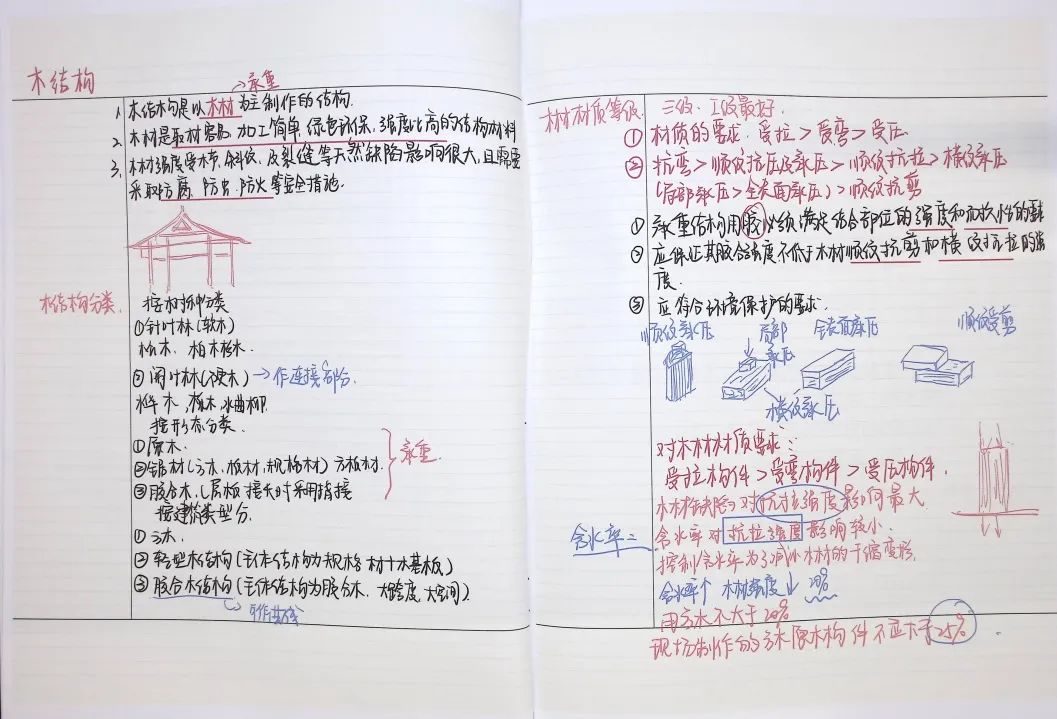 木结构
→承重
1. 木结构是以木材为主制作的结构.
2. 木材是取材容易,加工简单,绿色环保,强度比高的结构材料
3. 木材强度受木节,斜纹,及裂缝等天然缺陷影响很大,且需要
采取防腐,防虫,防火等安全措施.
木结构分类.
按树种分类
①针叶林(软木)
松木.柏木杉木.
②阔叶林(硬木)→作连接部份.
桦木,榆木,水曲柳.
按形态分类.
①原木.
②锯材(方木,板材,规格材)方板材.
③胶合木,(层板接长时采用指接
承重
按建筑类型分.
①方木.
②轻型木结构(主体结构为规格材+木基板)
③胶合木结构(主体结构为胶合木.大跨度,大空间).
木材材质等级.
三级.I级最好.
①材质的要求.受拉>受弯>受压
②抗弯>顺纹抗压及承压>顺纹抗拉>横纹承压
(局部承压>全表面承压)>顺纹抗剪
①承重结构用胶必须满足结合部位的强度和耐久性的要求
②应保证其胶合强度不低于木材顺纹抗剪和横纹抗拉的强
度.
③应符合环境保护的要求.
顺纹承压
局部
承压
全表面承压
顺纹受剪
横纹承压
对木材材质要求:
受拉构件>受弯构件>受压构件.
木材缺陷→对抗拉强度影响最大
含水率:
含水率对抗拉强度影响较小.
控制含水率为了减小木材的干缩变形.
含水率↑ 木材强度↓ 20%
用方木不大于20%
现场制作的方木原木构件不应大于25%